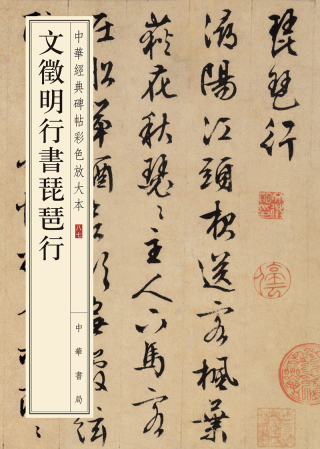 琵琶行
潯陽江頭夜送客楓葉
荻花秋瑟〻主人下馬客
在船舉酒欲飲無管絃
中華經典碑帖彩色放大本
文徵明行書琵琶行
中華書局